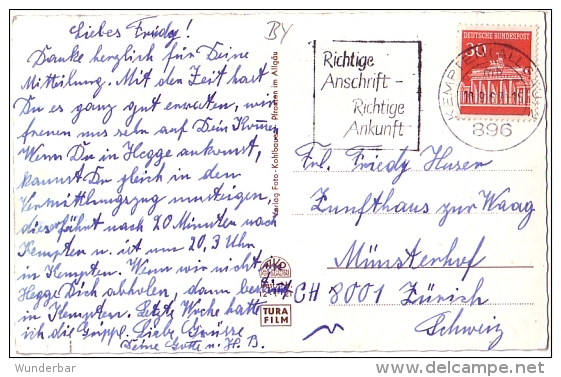 Liebes Friedy!
BY
Danke herzlich für Deine
Mitteilung. Mit der Zeit hast
Du es ganz gut erraten, wir
freuen uns sehr auf Dein Kommen
Wenn Du in Hegge ankommst,
kannst Du gleich in den
Vermittlungszug umsteigen,
dieser fährt nach 20 Minuten nach
Kempten u. ist um 20,3 Uhr
in Kempten. Wenn wir nicht in
Hegge Dich abholen, dann
in Kempten. Letzte Woche hatte
ich die Grippe. Liebe Grüsse
Deine Gotte u. H. B.
Verlag Foto-Kohlbauer, Pfronten im Allgäu
TURA
FILM
Richtige
Anschrift -
Richtige
Ankunft
DEUTSCHE BUNDESPOST
30
KEMPTEN (ALLGÄU)
896
Frl. Friedy Huser
Zunfthaus zur Waag
Münsterhof
CH 8001 Zürich
Schweiz
Wunderbar
delcampe.net